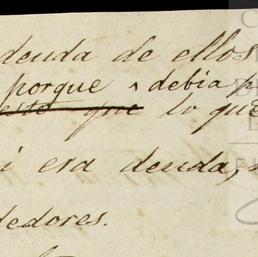 deuda de ellos
porque ^ debia
este que lo que
i era deuda,
dedores.